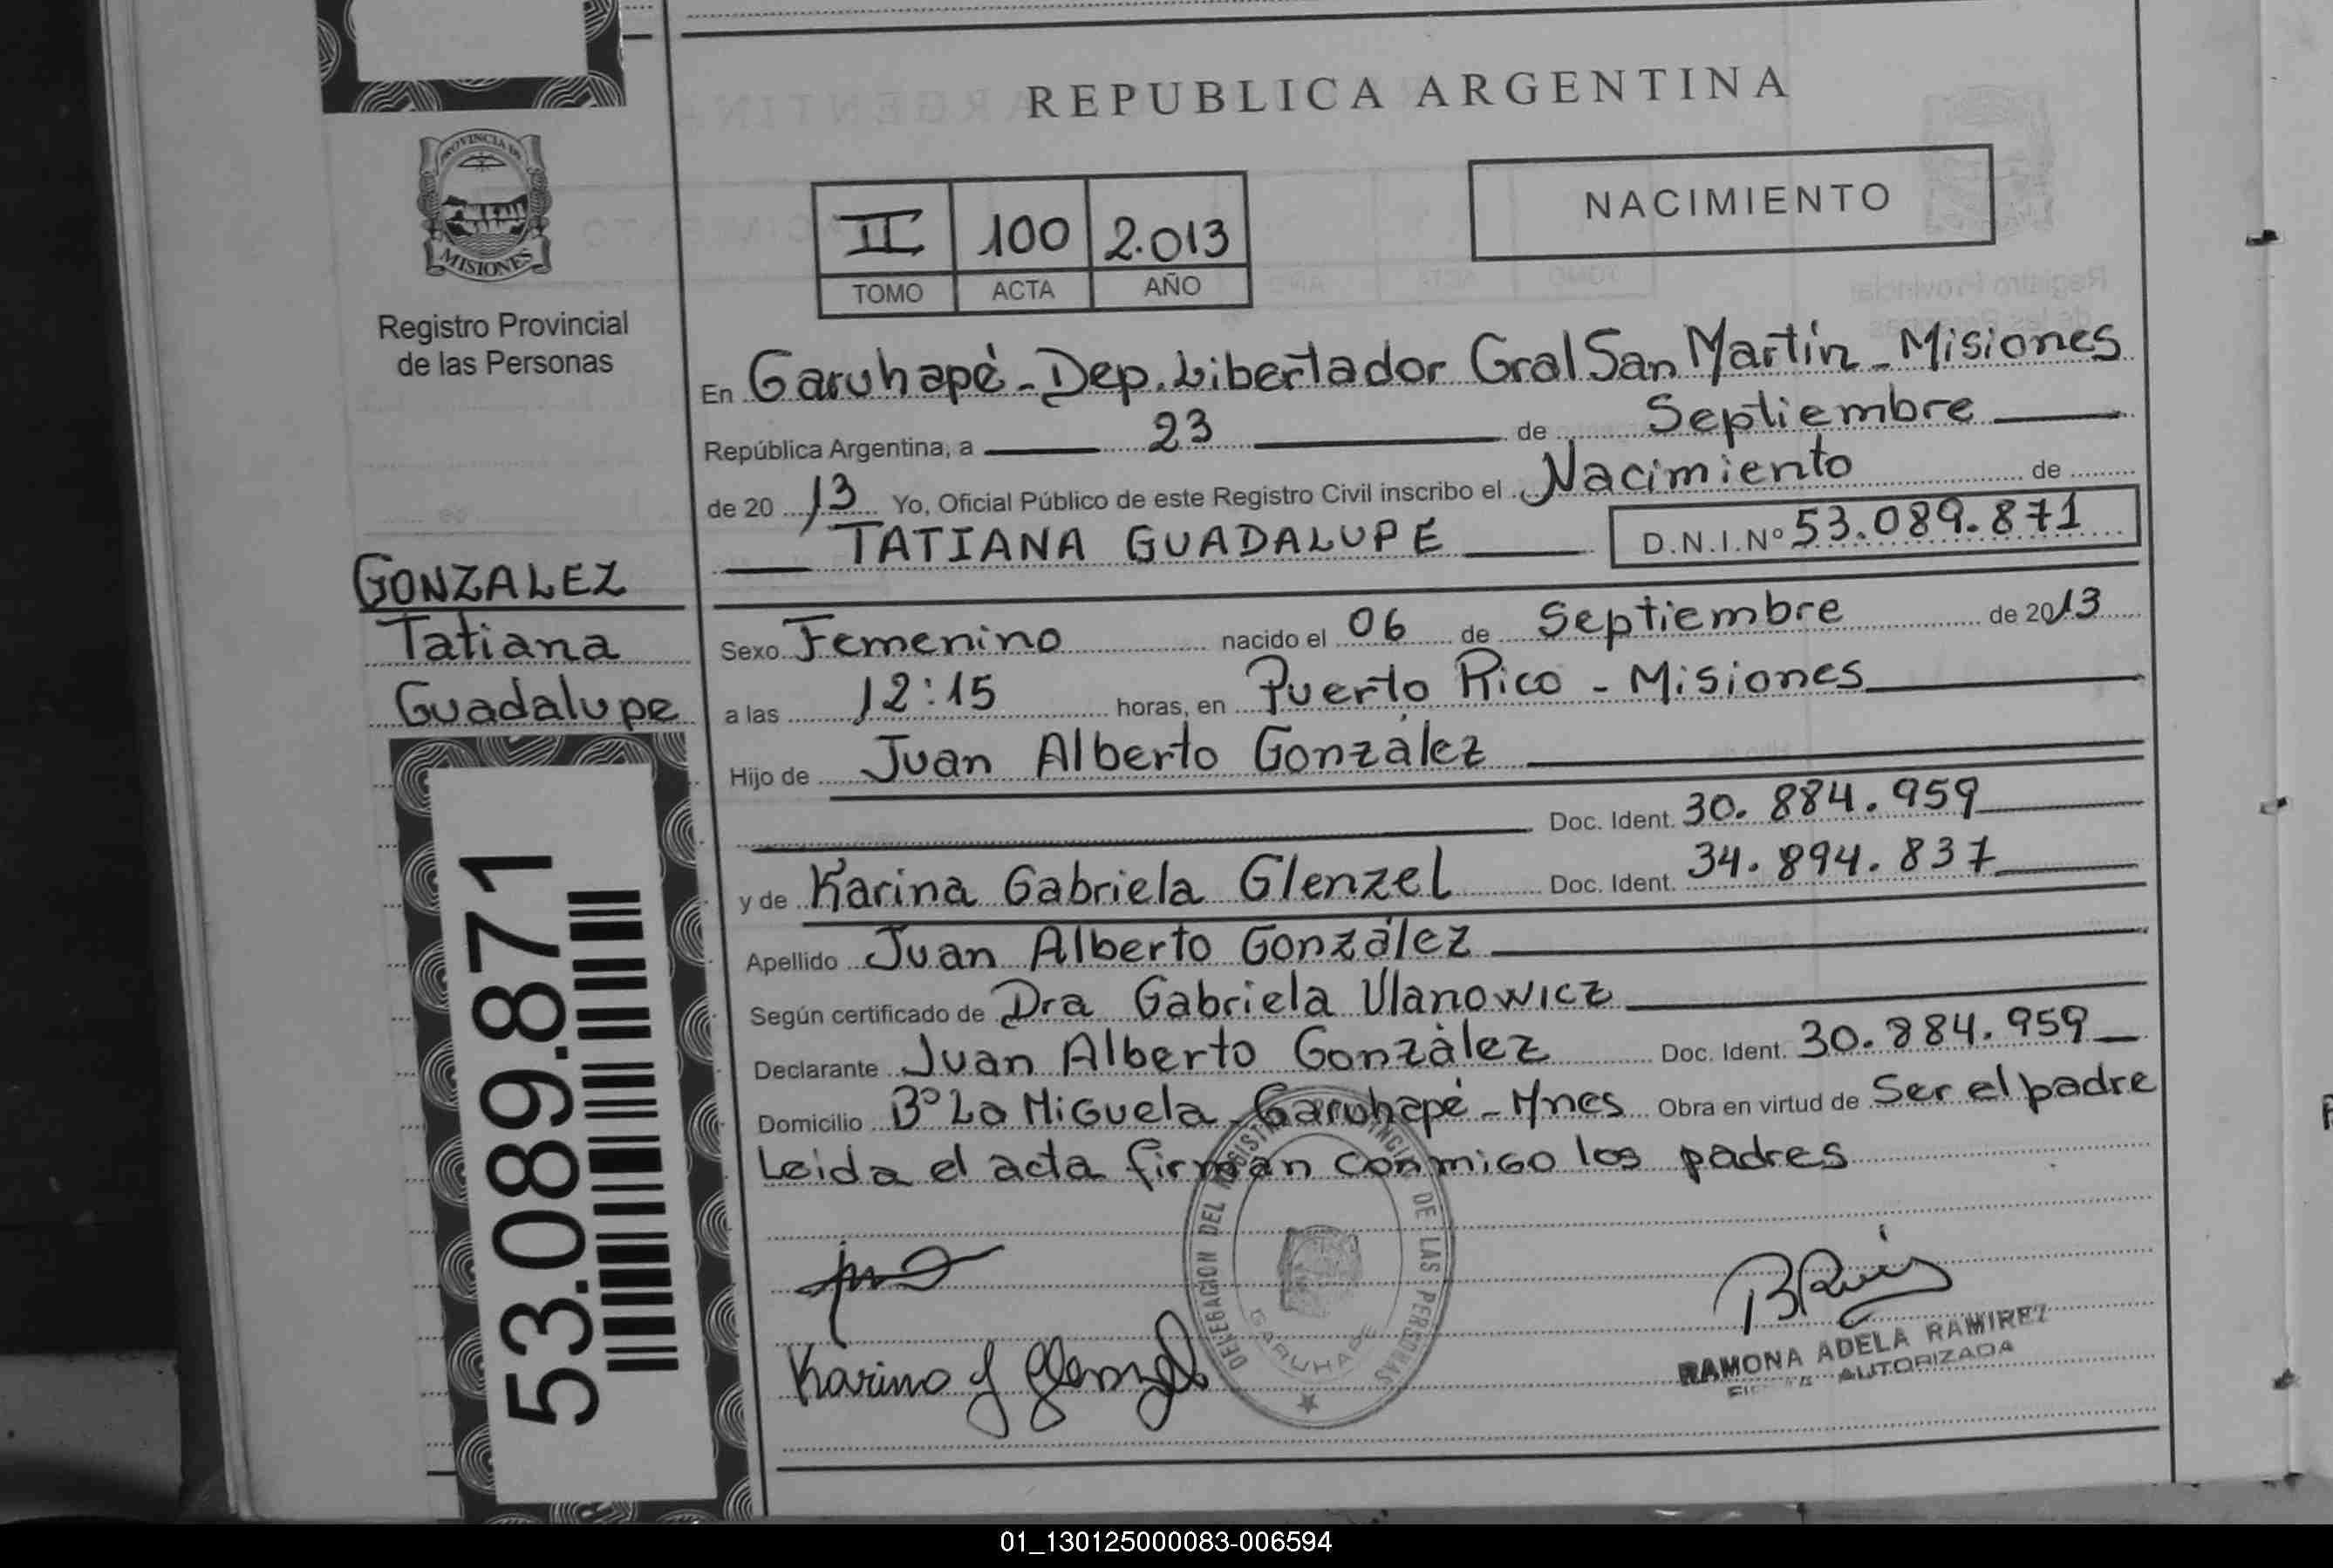 REPUBLICA ARGENTINA
PROVINCIA DE
MISIONES
Registro Provincial
de las Personas
NACIMIENTO
II 100 2.013
TOMO ACTA AÑO
En Garuhapé - Dep. Libertador Gral San Martín - Misiones
República Argentina, a 23 de Septiembre
de 20 13 Yo, Oficial Público de este Registro Civil inscribo el Nacimiento de
TATIANA GUADALUPE D.N.I.Nº 53.089.871
GONZALEZ
Tatiana
Guadalupe
53.089.871
Sexo Femenino nacido el 06 de Septiembre de 2013
a las 12:15 horas, en Puerto Rico - Misiones
Hijo de Juan Alberto González
Doc. Ident. 30.884.959
y de Karina Gabriela Glenzel Doc. Ident. 34.894.837
Apellido Juan Alberto González
Según certificado de Dra Gabriela Ulanowicz
Declarante Juan Alberto González Doc. Ident. 30.884.959
Domicilio Bº La Miguela - Garuhapé - Mnes Obra en virtud de Ser el padre
Leida el acta firman conmigo los padres
DELEGACION DEL REGISTRO PROVINCIAL DE LAS PERSONAS
GARUHAPE
Karina G Glenzel
RAMONA ADELA RAMIREZ
AUTORIZADA
01_130125000083-006594